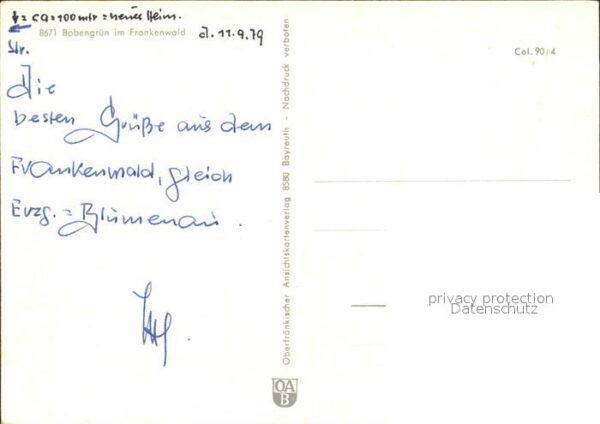 ↓ = ca = 100 mtr = neues Heim.
8671 Bobengrün im Frankenwald
d. 11.9.79
Str.
Die
besten Grüße aus dem
Frankenwald, gleich
Erzg. = Blumenau.
Oberfränkischer Ansichtskartenverlag 8580 Bayreuth - Nachdruck verboten
OA
B
Col. 90/4
privacy protection
Datenschutz